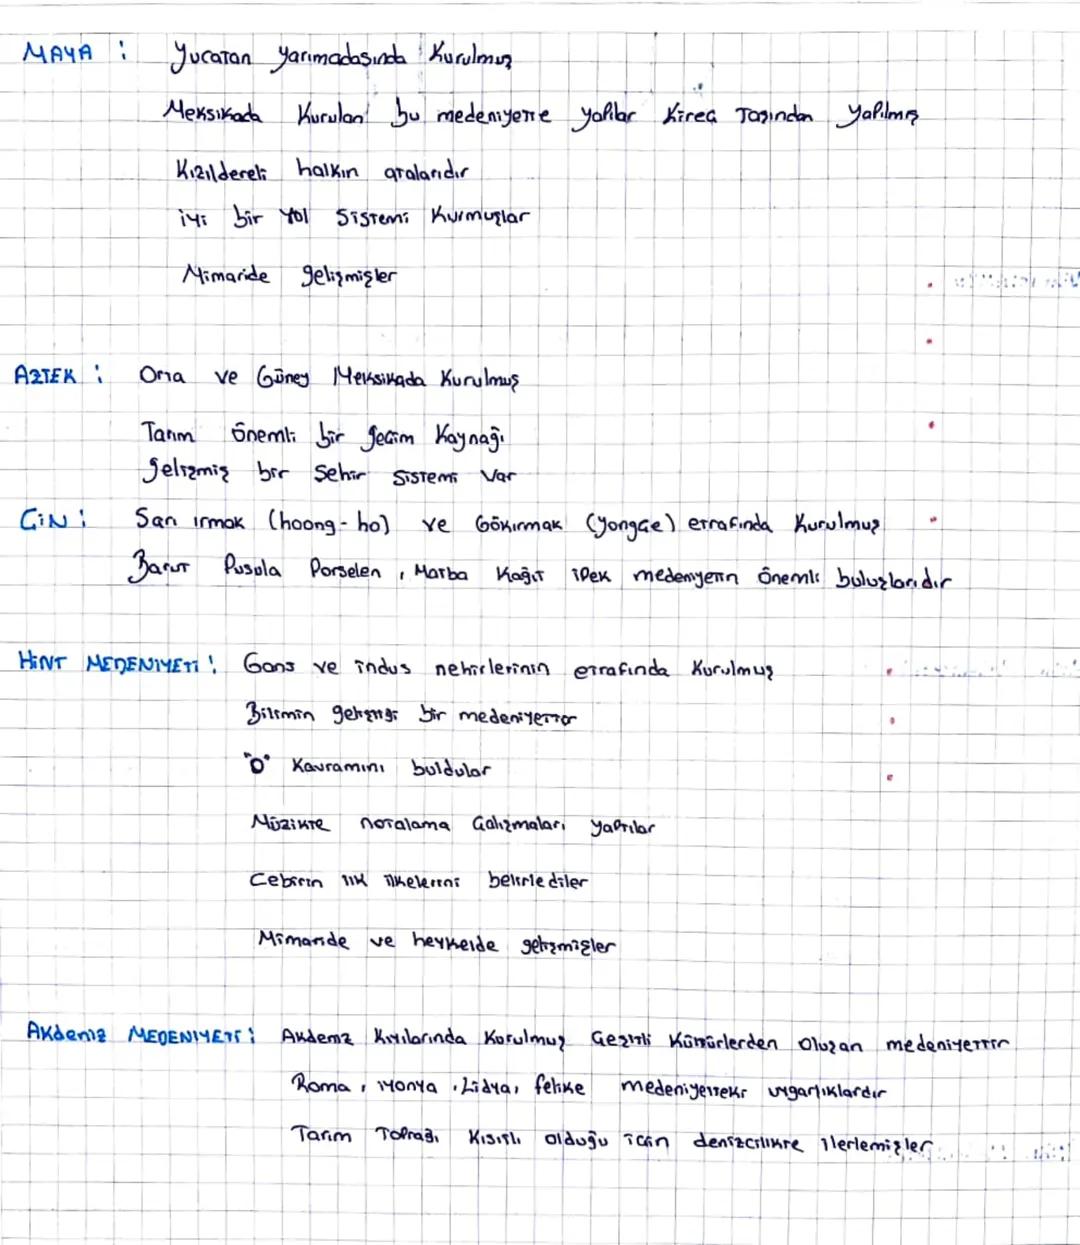 MAYA : Yucatan yarımadasında Kurulmuş
Meksikada Kurulan bu medeniyette yapılar Kireç Taşından Yapılmış
Kızıldereli halkın atalarıdır
iyi bir Yol Sistemi Kurmuşlar
Mimaride gelişmişler
AZTEK : Orta ve Güney Meksikada Kurulmuş
Tarım önemli bir geçim Kaynağı
gelişmiş bir Şehir Sistemi Var
ÇİN : Sarı ırmak (hoong-ho) ve Gökırmak (yongçe) etrafında Kurulmuş
Barut Pusula Porselen , Matba Kağıt ipek medenyetin önemli buluşlarıdır
HİNT MEDENİYETİ : Gans ve indus nehirlerinin etrafında Kurulmuş
Bilimin geliştiği bir medeniyettir
"0" Kavramını buldular
Müzikte notalama Çalışmaları yaptılar
Cebirin ilk ilkelerini belirlediler
Mimaride ve heykelde gelişmişler
Akdeniz MEDENİYETİ : Akdeniz Kıyılarında Kurulmuş Çeşitli Kültürlerden Oluşan medeniyettir
Roma , iyonya , Lidya , felike medeniyetteki uygarlıklardır
Tarım Toprağı Kısıtlı olduğu için denizcilikte ilerlemişler